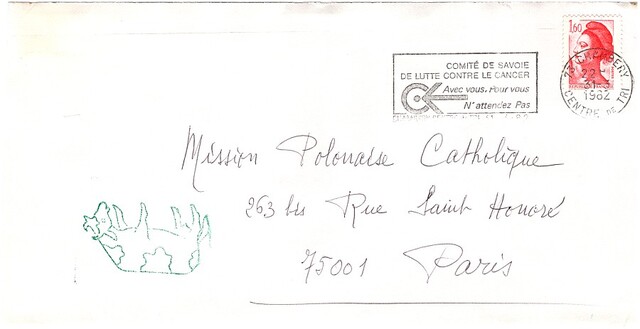 1,60
COMITÉ DE SAVOIE
DE LUTTE CONTRE LE CANCER
Avec vous, Pour vous
N'attendez Pas
73 CHAMBERY
22 H
31-3
1982
CENTRE DE TRI
Mission Polonaise Catholique
263 bis Rue Saint Honoré
75001 Paris